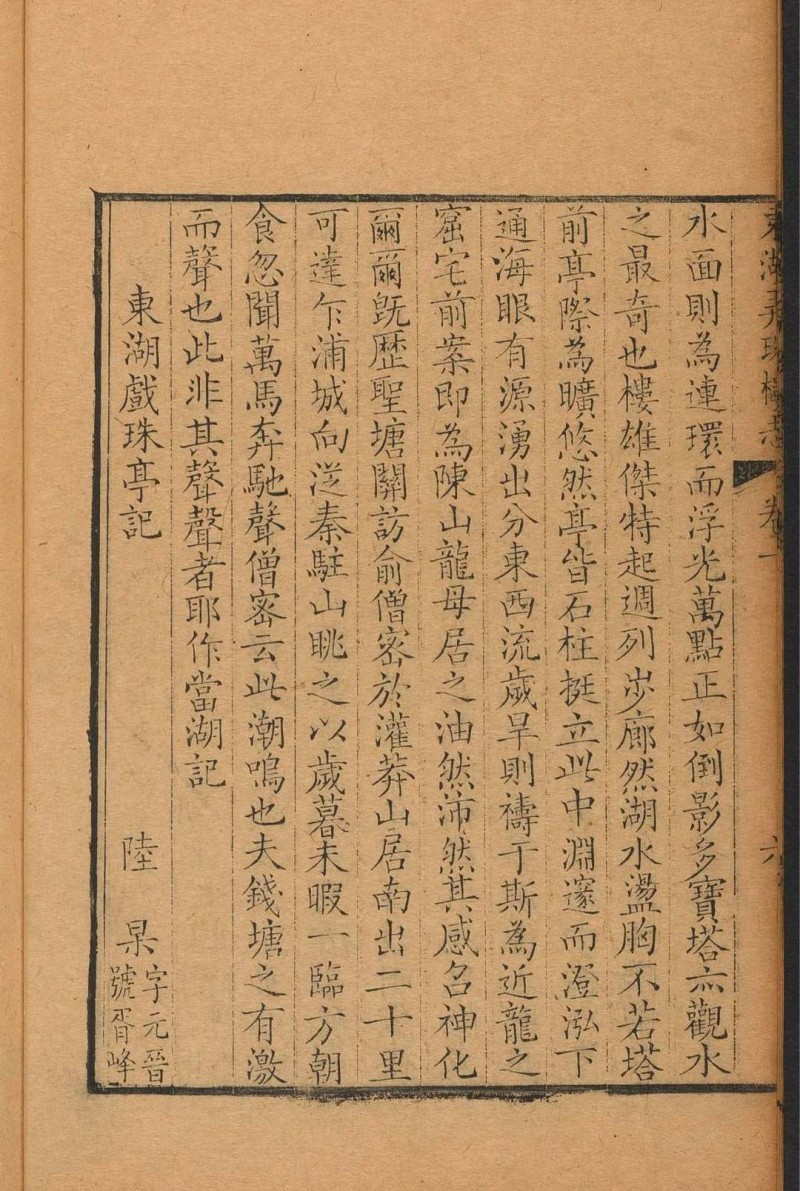 東湖弄珠樓志 卷一 六
水面則為連環而浮光萬點正如倒影多寶塔亦觀水
之最奇也樓雄傑特起週列步廊然湖水盪胸不若塔
前亭際為曠悠然亭皆石柱挺立此中淵邃而澄泓下
通海眼有源湧出分東西流歲旱則禱于斯為近龍之
窟宅前案即為陳山龍母居之油然沛然其感召神化
爾爾既歷聖塘關訪俞僧密於灌莽山居南出二十里
可達乍浦城向從秦駐山眺之以歲暮未暇一臨方朝
食忽聞萬馬奔馳聲僧密云此潮鳴也夫錢塘之有激
而聲也此非其聲聲者耶作當湖記
東湖戲珠亭記 陸杲 字元晉 號胥峰